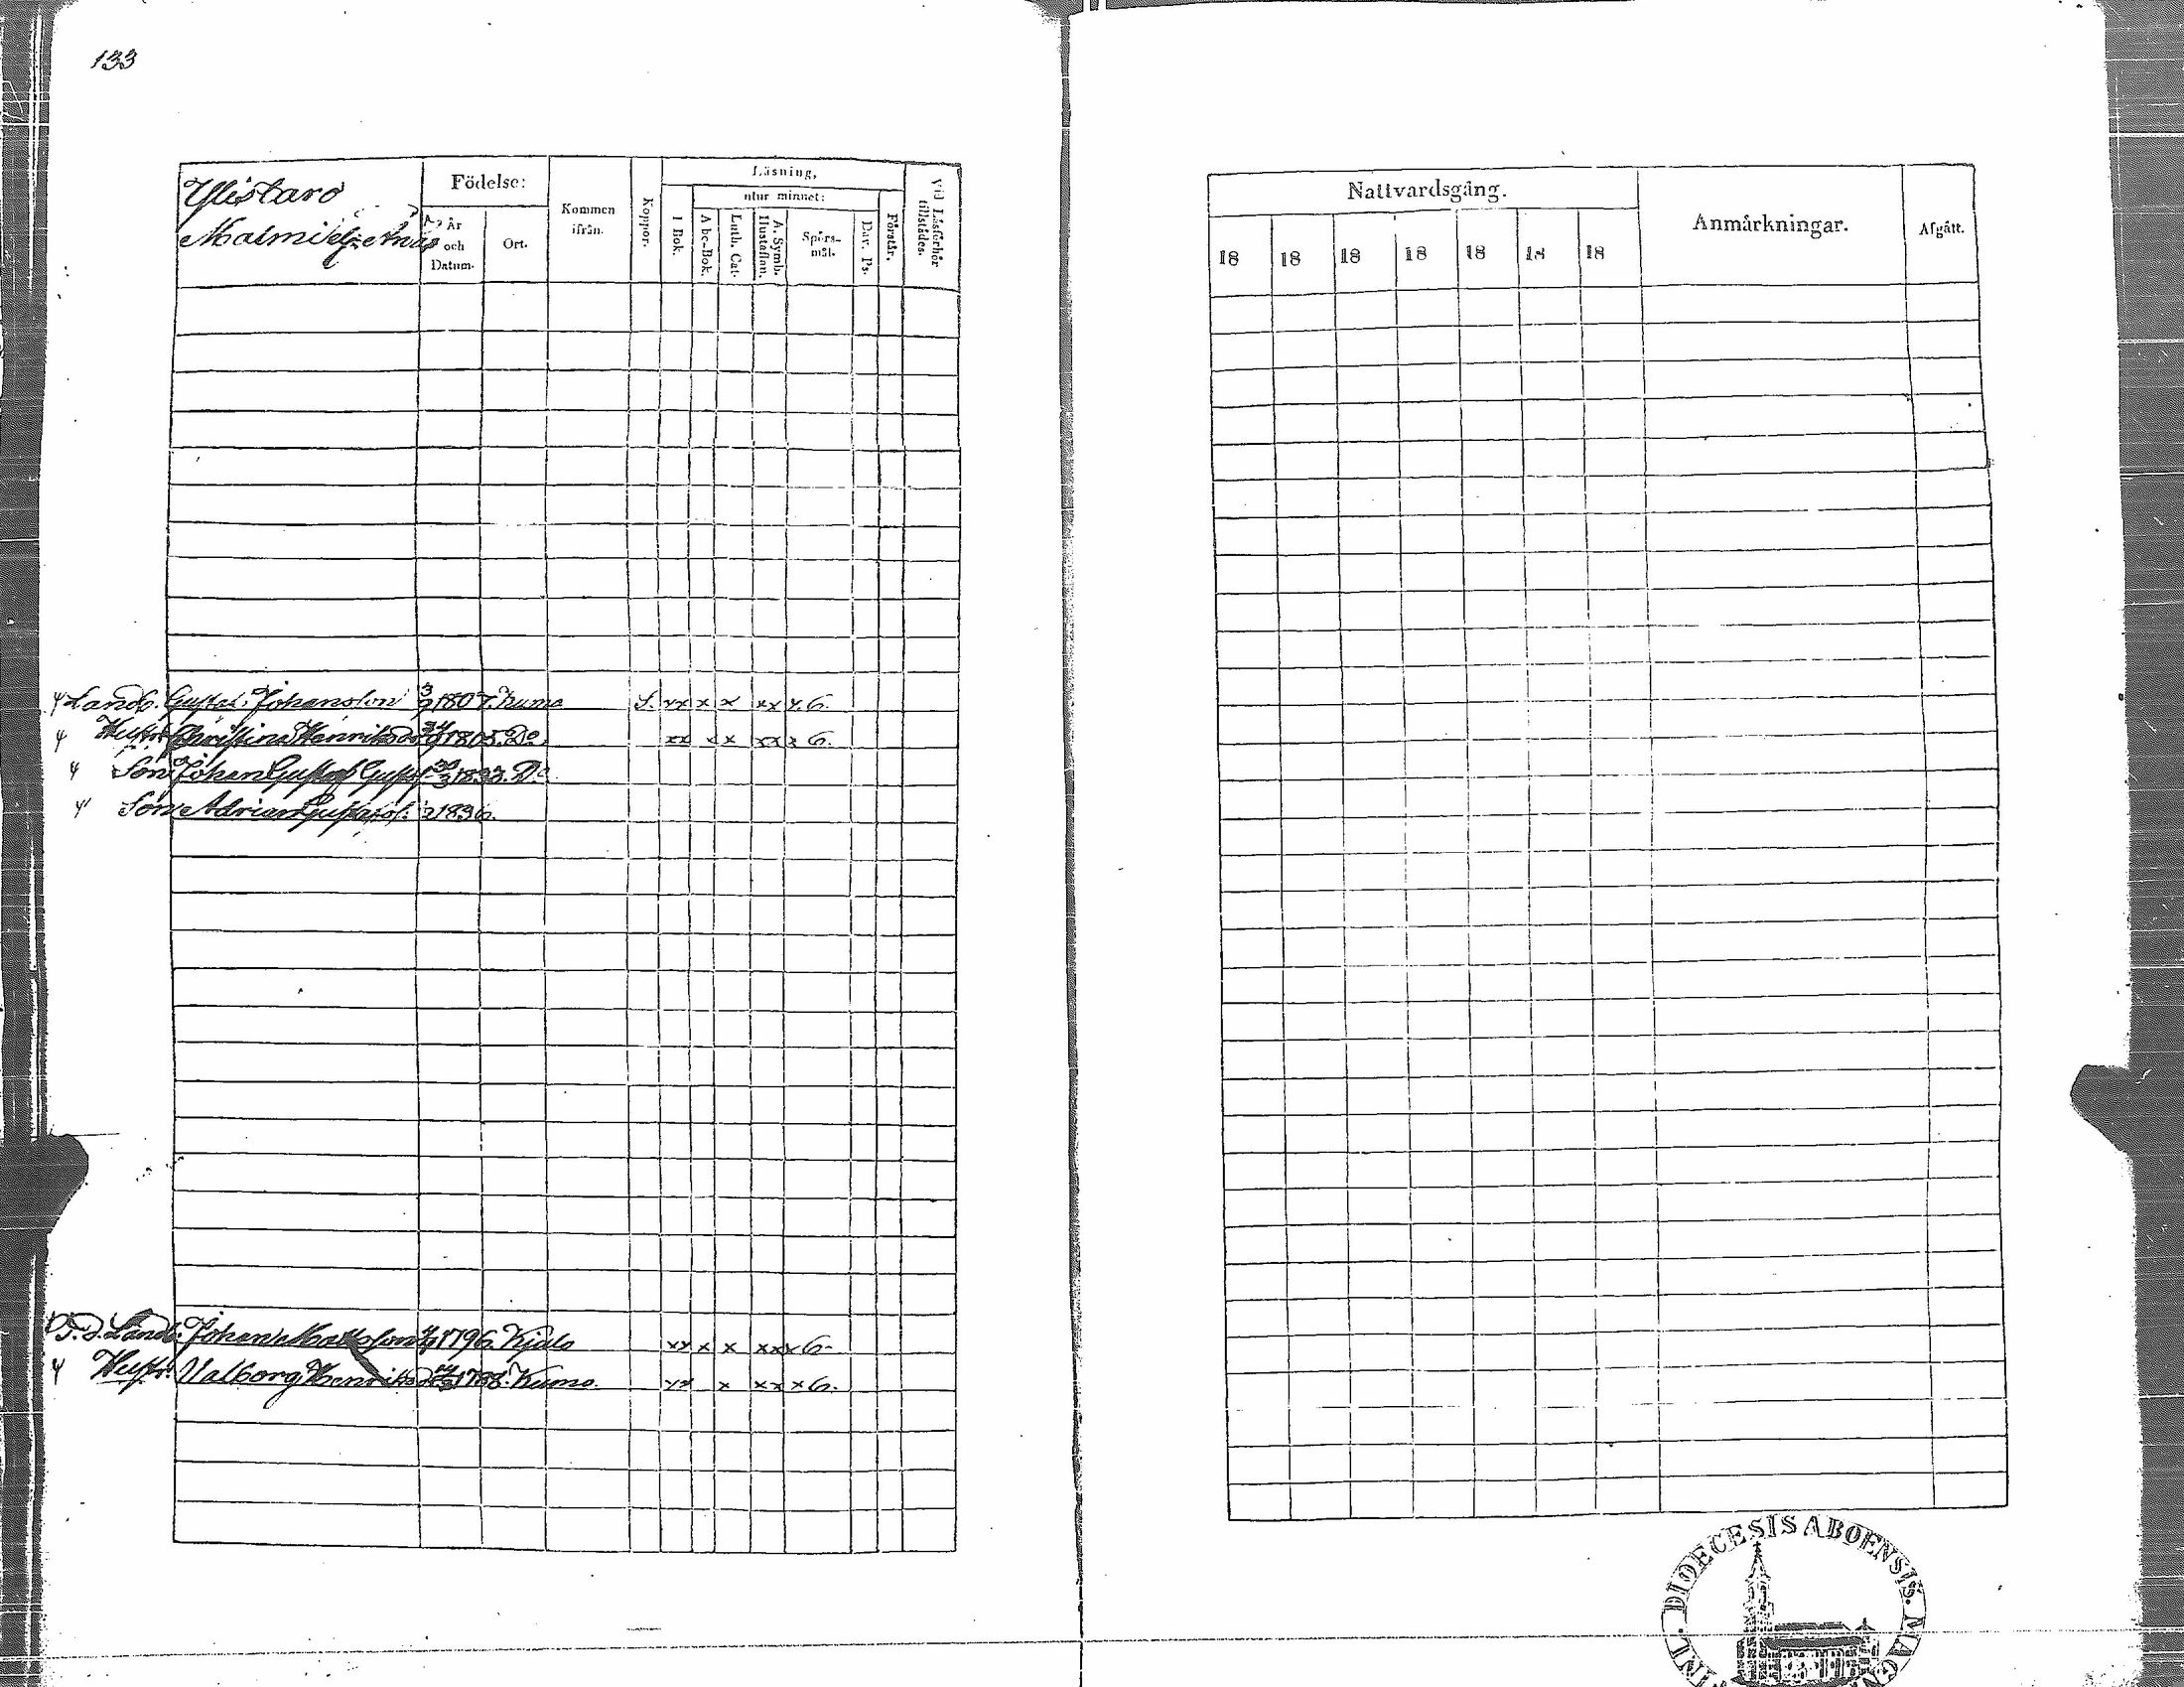 133
Ylistaro
Födelse:
År och Datum.
Ort.
Kommen ifrån.
Koppor.
Läsning,
utur minnet:
I Bok.
A bc-Bok.
Luth. Cat.
A. Symb. Hustaflan.
Spörs-mål.
Dav. Ps.
Förstår.
Vid Läsförhör tillstädes.
Landb. Gustaf Johansson 3/9 1807. Kumo S. xx x x xx x 6.
Hustr. Christina Henriksdr 1805. Do xx x x xx x 6.
Son Johan Gustaf Gustafs. 30/3 1833. Do
Son Adrian Gustafss. 1836.
Landb. Johan Mattsson 1796. Kjulo xx x x xx x 6.
Hustr. Valborg Henriksdr 1788. Kumo. xx x xx x 6.
Nattvardsgång.
18 18 18 18 18 18 18
Anmärkningar.
Afgått.
DIOECESIS ABOENSIS. MAG